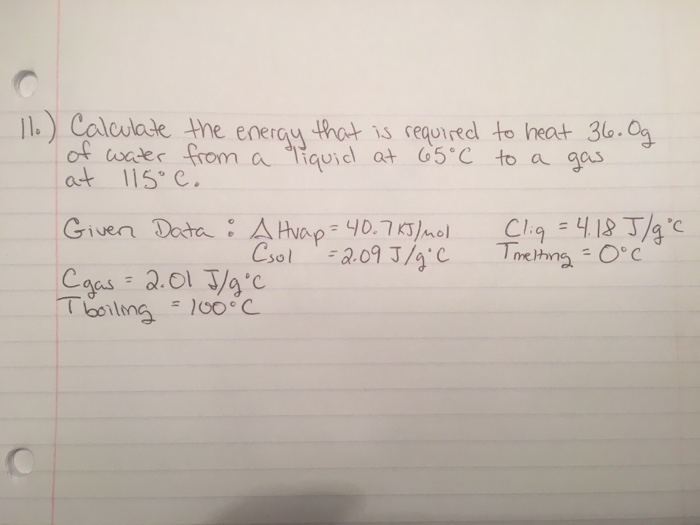 11.) Calculate the energy that is required to heat 36.0g
of water from a liquid at 65°C to a gas
at 115°C.
Given Data : ΔHvap = 40.7 KJ/mol Cliq = 4.18 J/g°C
Csol = 2.09 J/g°C Tmelting = 0°C
Cgas = 2.01 J/g°C
Tboiling = 100°C